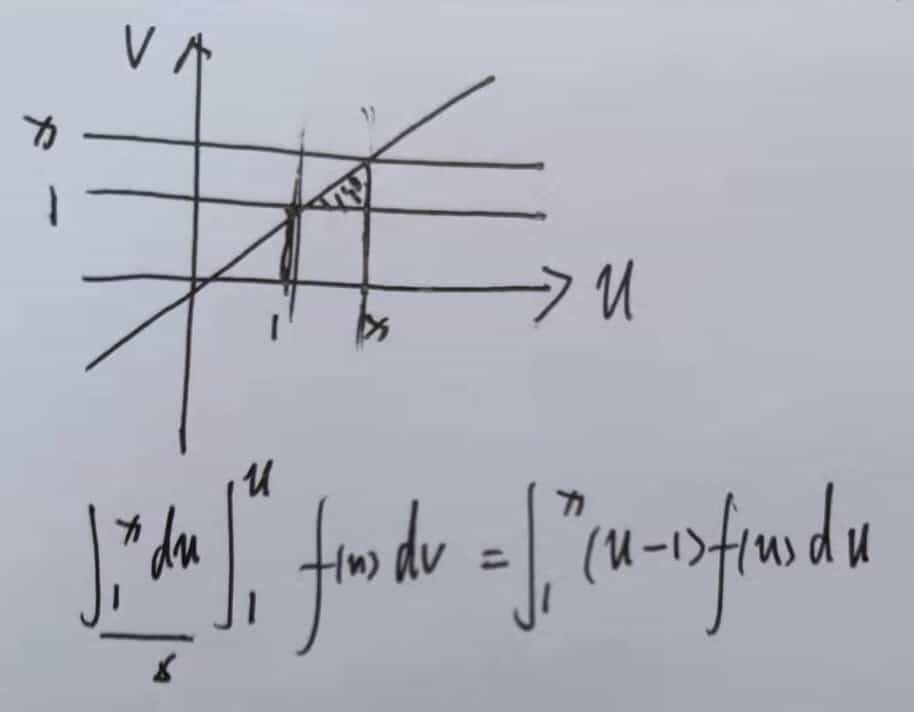 V
x
1
u
1 x
∫₁ˣ du ∫₁ᵘ f(u) dv = ∫₁ˣ (u-1) f(u) du
x